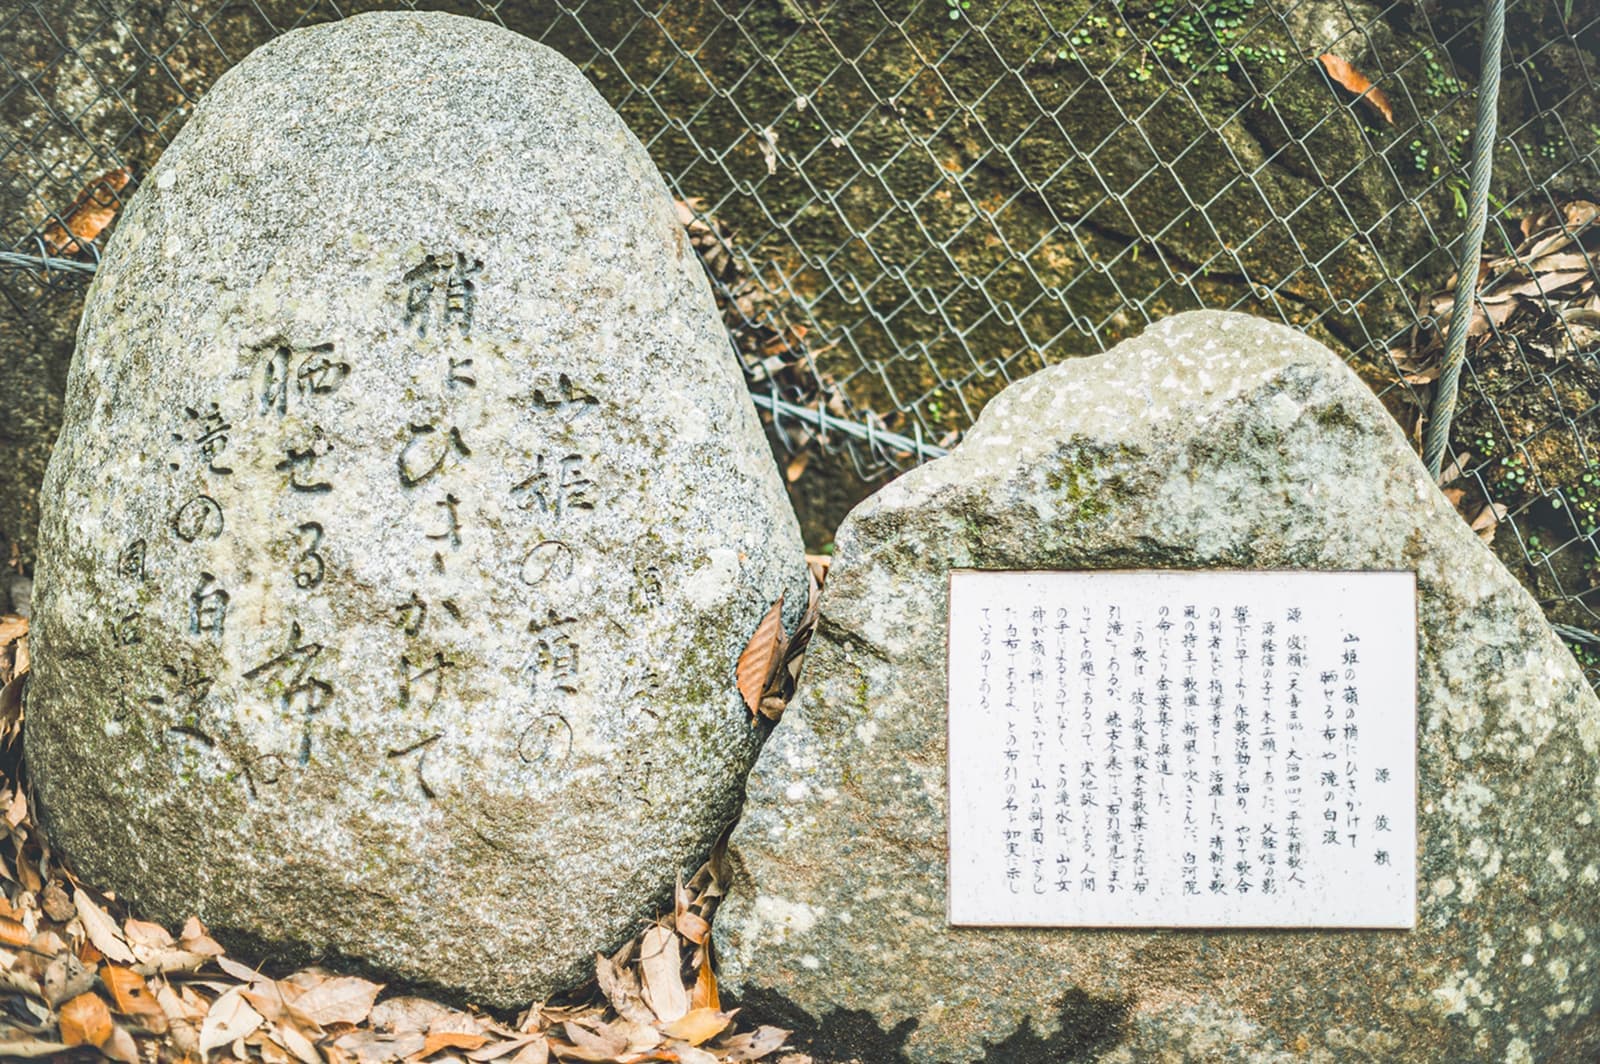 源俊頼
山姫の嶺の
梢にひきかけて
晒せる布や
滝の白波
源 俊頼
山姫の嶺の梢にひきかけて
晒せる布や滝の白波
源 俊頼(天喜三1055~大治四1129)平安朝歌人、
源経信の子で木工頭であった。父経信の影
響下に早くより作歌活動を始め、やがて歌合
の判者など指導者として活躍した。清新な歌
風の持主で歌壇に新風を吹きこんだ。白河院
の命により金葉集を撰進した。
この歌は、彼の歌集散木奇歌集によれば「布
引滝」であるが、続古今集では「布引滝見にまか
りて」との題であるので、実地詠となる。人間
の手によるものでなく、その滝水は、山の女
神が嶺の梢にひきかけて、山の斜面にさらし
た白布であるよ、との布引の名を如実に示し
ているのである。